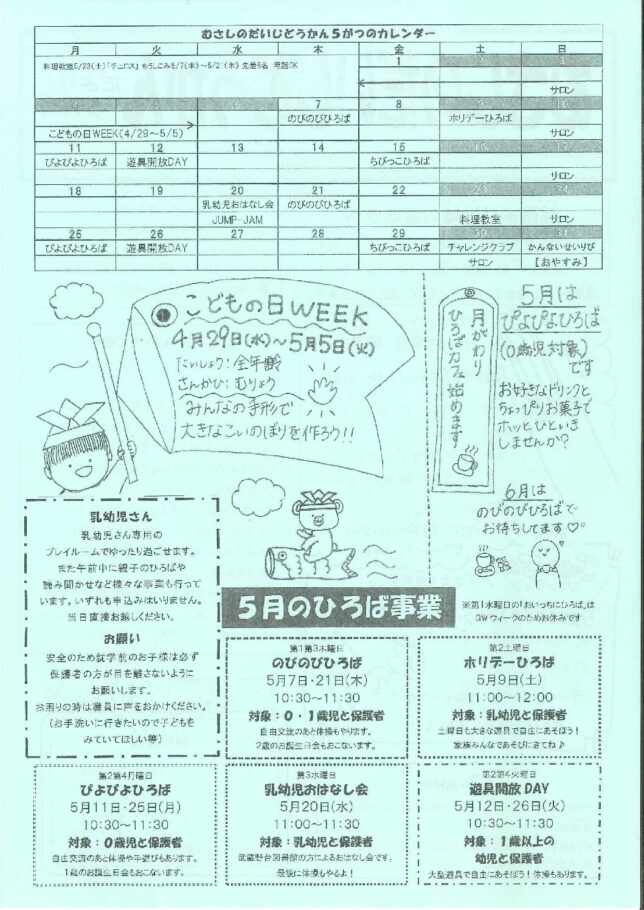 むさしのだいじどうかん5がつのカレンダー
月 火 水 木 金 土 日
料理教室5/23(土)「チュロス」もうしこみ5/7(木)~5/2 (木) 先着5名 電話OK
1 2 3
サロン
4 5 6 7 8 9 10
のびのびひろば ホリデーひろば
こどもの日WEEK(4/29~5/5) サロン
11 12 13 14 15 16 17
ぴよぴよひろば 遊具開放DAY ちびっこひろば
サロン
18 19 20 21 22 23 24
乳幼児おはなし会 のびのびひろば
JUMP-JAM 料理教室 サロン
25 26 27 28 29 30 31
ぴよぴよひろば 遊具開放DAY ちびっこひろば チャレンジクラブ かんないせいりび
サロン 【おやすみ】
こどもの日WEEK
4月29日(水)~5月5日(火)
たいしょう:全年齢
さんかひ:むりょう
みんなの手形で
大きなこいのぼりを作ろう!!
月がわり
ひろばカフェ始めます
5月は
ぴよぴよひろば
(0歳児対象)
です
お好きなドリンクと
ちょっぴりお菓子で
ホッとひといき
しませんか?
6月は
のびのびひろばで
お待ちしてます♡
乳幼児さん
乳幼児さん専用の
プレイルームでゆったり過ごせます。
また午前中に親子のひろばや
読み聞かせなど様々な事業も行って
います。いずれも申込みはいりません。
当日直接お越しください。
お願い
安全のため就学前のお子様は必ず
保護者の方が目を離さないように
お願いします。
お困りの時は職員に声をおかけください。
(お手洗いに行きたいので子どもを
みていてほしい等)
5月のひろば事業
※第1水曜日の「おいっちにひろば」は
GWウィークのためお休みです
第1第3木曜日
のびのびひろば
5月7日・21日(木)
10:30~11:30
対象:0・1歳児と保護者
自由交流のあと体操もやります。
2歳のお誕生日会もおこないます。
第2土曜日
ホリデーひろば
5月9日(土)
11:00~12:00
対象:乳幼児と保護者
土曜日も大きな遊具で自由にあそぼう!
家族みんなであそびにきてね♪
第2第4月曜日
ぴよぴよひろば
5月11日・25日(月)
10:30~11:30
対象:0歳児と保護者
自由交流のあと体操や手遊びもあります。
1歳のお誕生日会もおこないます。
第3水曜日
乳幼児おはなし会
5月20日(水)
11:00~11:30
対象:乳幼児と保護者
武蔵野台図書館の方によるおはなし会です。
最後に体操もやるよ!
第2第4火曜日
遊具開放DAY
5月12日・26日(火)
10:30~11:30
対象:1歳以上の
幼児と保護者
大型遊具で自由にあそぼう!体操もあります。